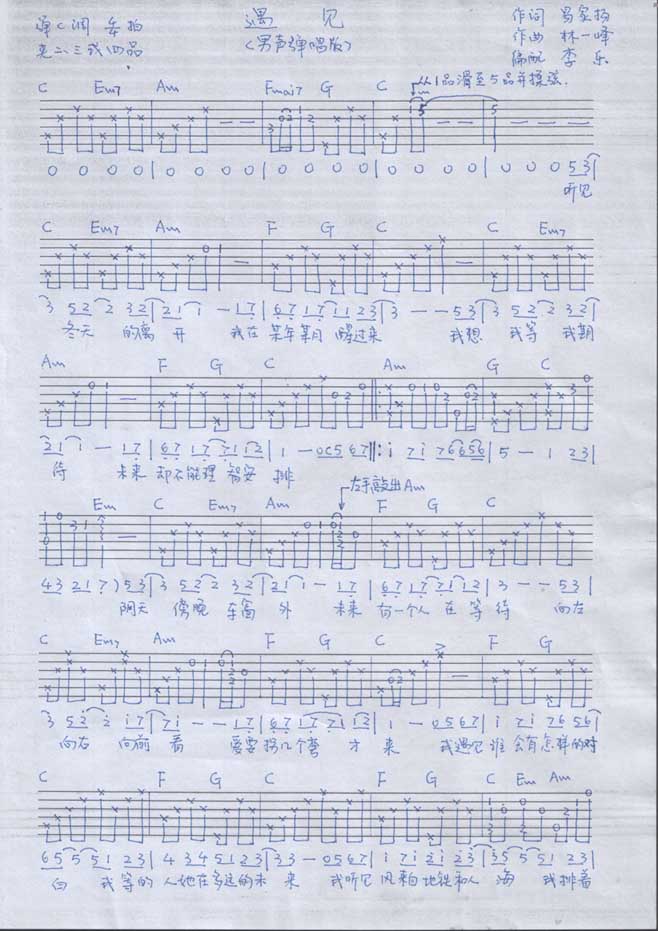 弹C调 乐拍 遇见 作词 易家扬
夹二、三弦四品 (男声弹唱版) 作曲 林一峰
编配 李乐
1品滑至5品并揉弦
C Em7 Am Fmaj7 G C
0 0 0 0 | 0 0 0 0 | 0 0 0 0 | 0 0 0 0 | 0 0 0 53 |
听见
C Em7 Am F G C C Em7
3 52 2 32 | 21 1 - 17 | 67 17 11 23 | 3 - - 53 | 3 52 2 32 |
冬天 的离 开 我在 某年某月 醒过来 我想 我等 我期
Am F G C Am G C
21 1 - 17 | 67 17 71 12 | 1 - 05 67 |: i 7i 76 656 | 5 - 1 23 |
待 未来 却不能理智安排
左手敲出Am
Em C Em7 Am F G C
43 21 7) 53 | 3 52 2 32 | 21 1 - 17 | 67 17 71 12 | 3 - - 53 |
阴天 傍晚 车窗 外 未来 有一个人 在 等待 向左
C Em7 Am F G C F G
3 52 2 17 | 71 - - 17 | 67 17 71 12 | 1 - 05 67 | i 7i 76 56 |
向右 向前 看 爱要 拐几个弯 才 来 我遇见 谁 会有怎样的对
C F G C F G C Em Am
65 5 51 23 | 4 34 51 23 | 33 - 05 67 | i 7i 2i 23 | 35 5 51 23 |
白 我等的 人她在多远的未 来 我听见 风来自 地铁和人 海 我排着